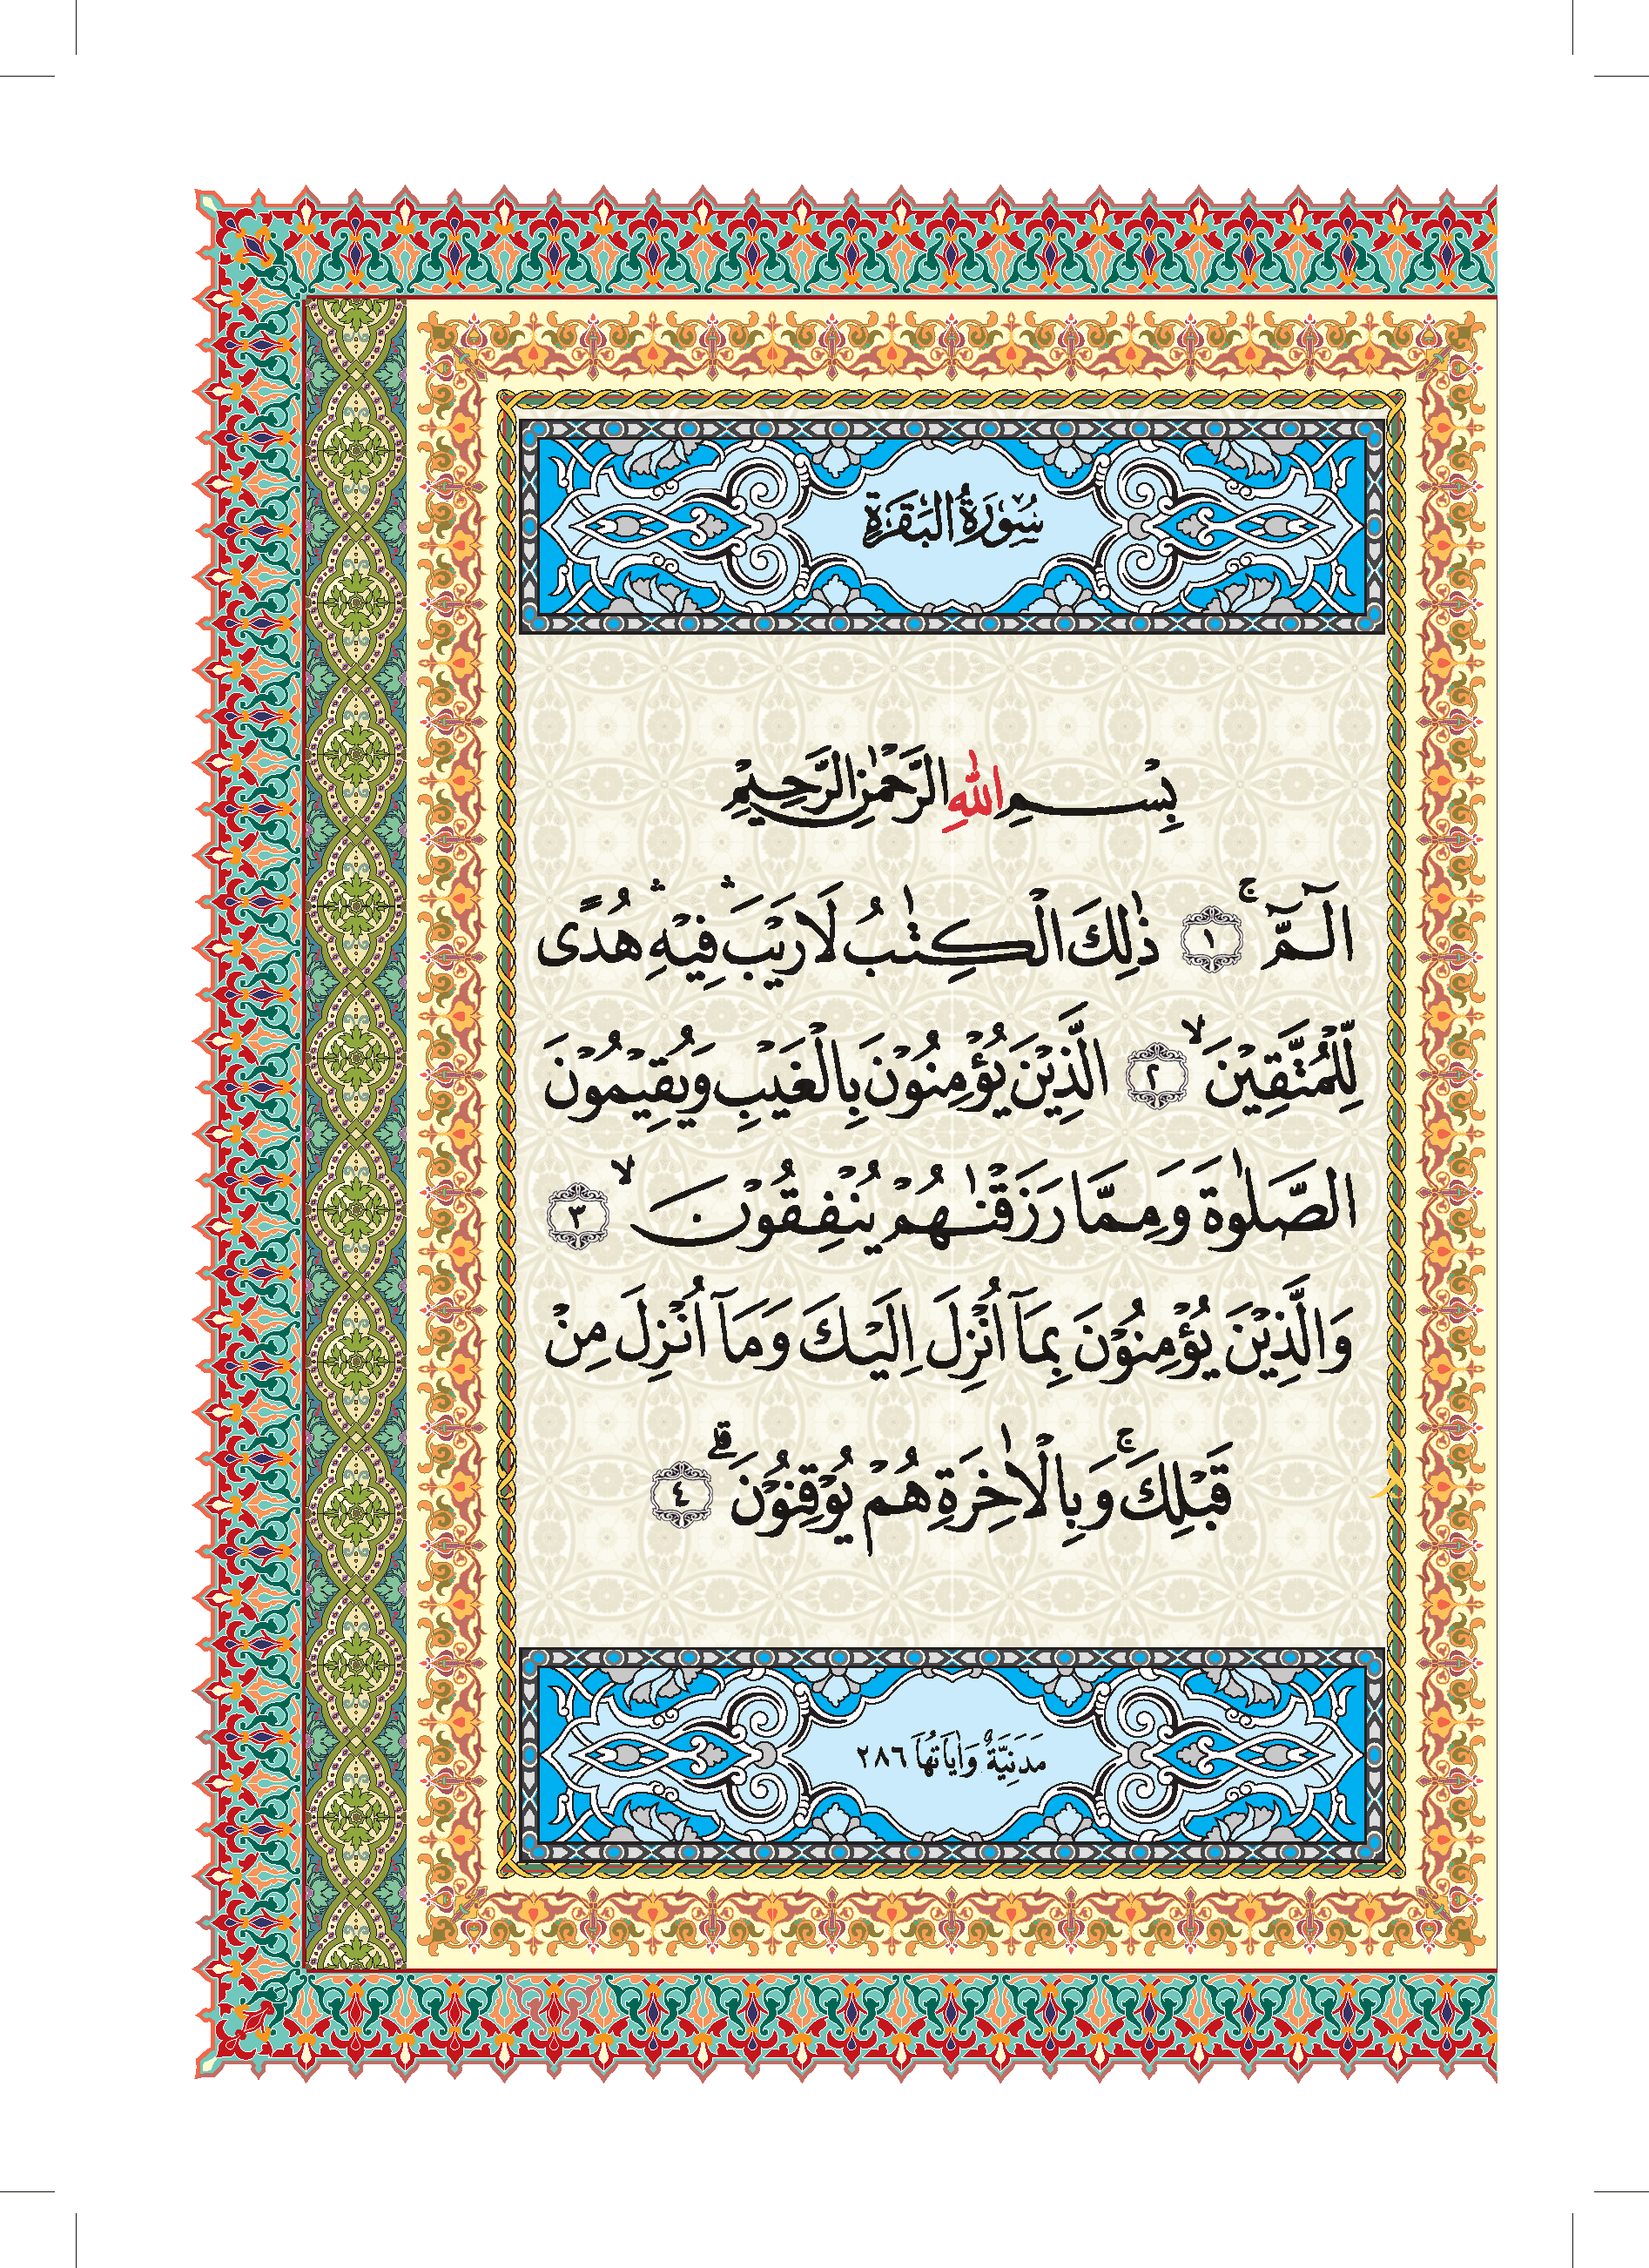 سُوْرَةُ الْبَقَرَةِ
بِسْمِ اللّٰهِ الرَّحْمٰنِ الرَّحِيْمِ
الٓـمّٓ ۚ ١ ذٰلِكَ الْكِتٰبُ لَا رَيْبَ ۛ فِيْهِ ۛ هُدًى
لِّلْمُتَّقِيْنَ ۙ ٢ الَّذِيْنَ يُؤْمِنُوْنَ بِالْغَيْبِ وَيُقِيْمُوْنَ
الصَّلٰوةَ وَمِمَّا رَزَقْنٰهُمْ يُنْفِقُوْنَ ۙ ٣
وَالَّذِيْنَ يُؤْمِنُوْنَ بِمَآ اُنْزِلَ اِلَيْكَ وَمَآ اُنْزِلَ مِنْ
قَبْلِكَ ۚ وَبِالْاٰخِرَةِ هُمْ يُوْقِنُوْنَ ۗ ٤
مَدَنِيَّةٌ وَاٰيَاتُهَا ٢٨٦